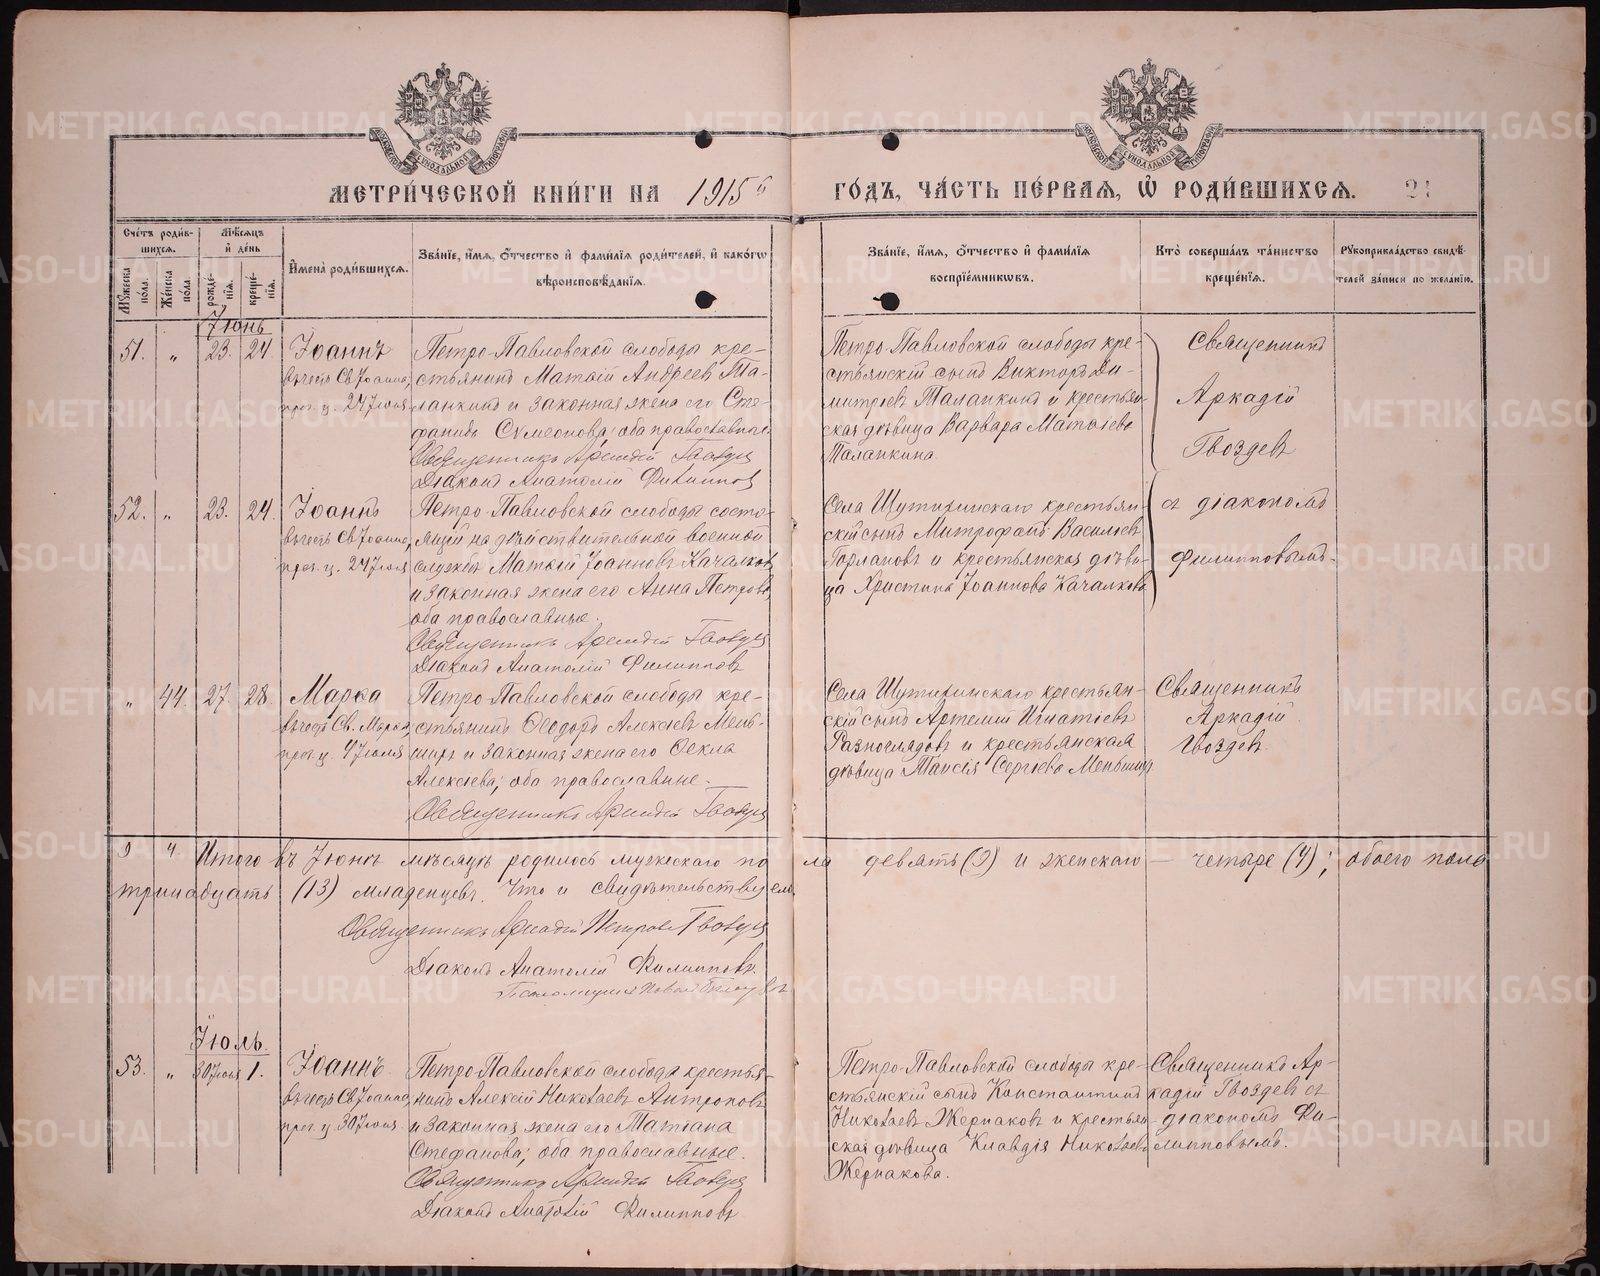 МЕТРИ́ЧЕСКОЙ КНИ́ГИ НА 1915й ГО́ДЪ, ЧА́СТЬ ПЕ́РВАЯ, Ѽ РОДИ́ВШИХСЯ. 21
Сче́тъ роди́в-
шихся.
Му́жеска по́ла.
Же́нска по́ла.
Мѣ́сяцъ и де́нь
рожде́нія.
креще́нія.
Имена̀ роди́вшихся.
Зва́ніе, и́мя, о́тчество и фами́лія роди́телей, и како́гѡ
вѣроисповѣ́данія.
Зва́ніе, и́мя, о́тчество и фами́лія
воспріе́мникѡвъ.
Кто̀ соверша́лъ та́инство
креще́нія.
Рукоприкла́дство свидѣ́-
телей за́писи по жела́нію.
Іюнь
51. " 23. 24.
Іоаннъ
въ честь Св. Іоанна,
праз. ц. 24 Іюня
Петро-Павловской слободы кре-
стьянинъ Матѳій Андреевъ Та-
ланкинъ и законная жена его Сте-
фанида Симеонова; оба православные.
Священникъ Аркадій Гвоздевъ
Діаконъ Анатолій Филипповъ
Петро-Павловской слободы кре-
стьянскій сынъ Викторъ Ди-
митріевъ Таланкинъ и крестьян-
ская дѣвица Варвара Матѳіева
Таланкина.
Священникъ
Аркадій
Гвоздевъ
52. " 23. 24.
Іоаннъ
въ честь Св. Іоанна,
праз. ц. 24 Іюня
Петро-Павловской слободы состо-
ящій на дѣйствительной военной
службѣ Матѳій Іоанновъ Качалковъ
и законная жена его Анна Петрова,
оба православные.
Священникъ Аркадій Гвоздевъ
Діаконъ Анатолій Филипповъ
Села Шутихинскаго крестьян-
скій сынъ Митрофанъ Васильевъ
Горлановъ и крестьянская дѣви-
ца Христина Іоаннова Качалкова
съ діакономъ
Филипповымъ.
" 44. 27. 28.
Марѳа
въ честь Св. Марѳы,
праз. ц. 4 Іюля
Петро-Павловской слободы кре-
стьянинъ Ѳеодоръ Алексіевъ Мень-
щиръ и законная жена его Ѳекла
Алексіева; оба православные.
Священникъ Аркадій Гвоздевъ
Села Шутихинскаго крестьян-
скій сынъ Артемій Игнатіевъ
Разноглядовъ и крестьянская
дѣвица Таисія Сергіева
Священникъ
Аркадій
Гвоздевъ.
9 4. Итого въ Іюнѣ мѣсяцѣ родилось мужескаго пола девять (9) и женскаго — четыре (4); обоего пола
тринадцать (13) младенцевъ. Что и свидѣтельствуемъ
Священникъ Аркадій Петровъ Гвоздевъ
Діаконъ Анатолій Филипповъ.
Іюль.
53. " 30 Іюня 1.
Іоаннъ
въ честь Св. Іоанна,
праз. ц. 30 Іюня
Петро-Павловской слободы крестья-
нинъ Алексій Николаевъ Антроповъ
и законная жена его Татіана
Стефанова; оба православные.
Священникъ Аркадій Гвоздевъ
Діаконъ Анатолій Филипповъ
Петро-Павловской слободы кре-
стьянскій сынъ Константинъ
Николаевъ Жернаковъ и крестьян-
ская дѣвица Клавдія Николаева
Жернакова.
Священникъ Ар-
кадій Гвоздевъ съ
діакономъ Фи-
липповымъ.
METRIKI.GASO-URAL.RU